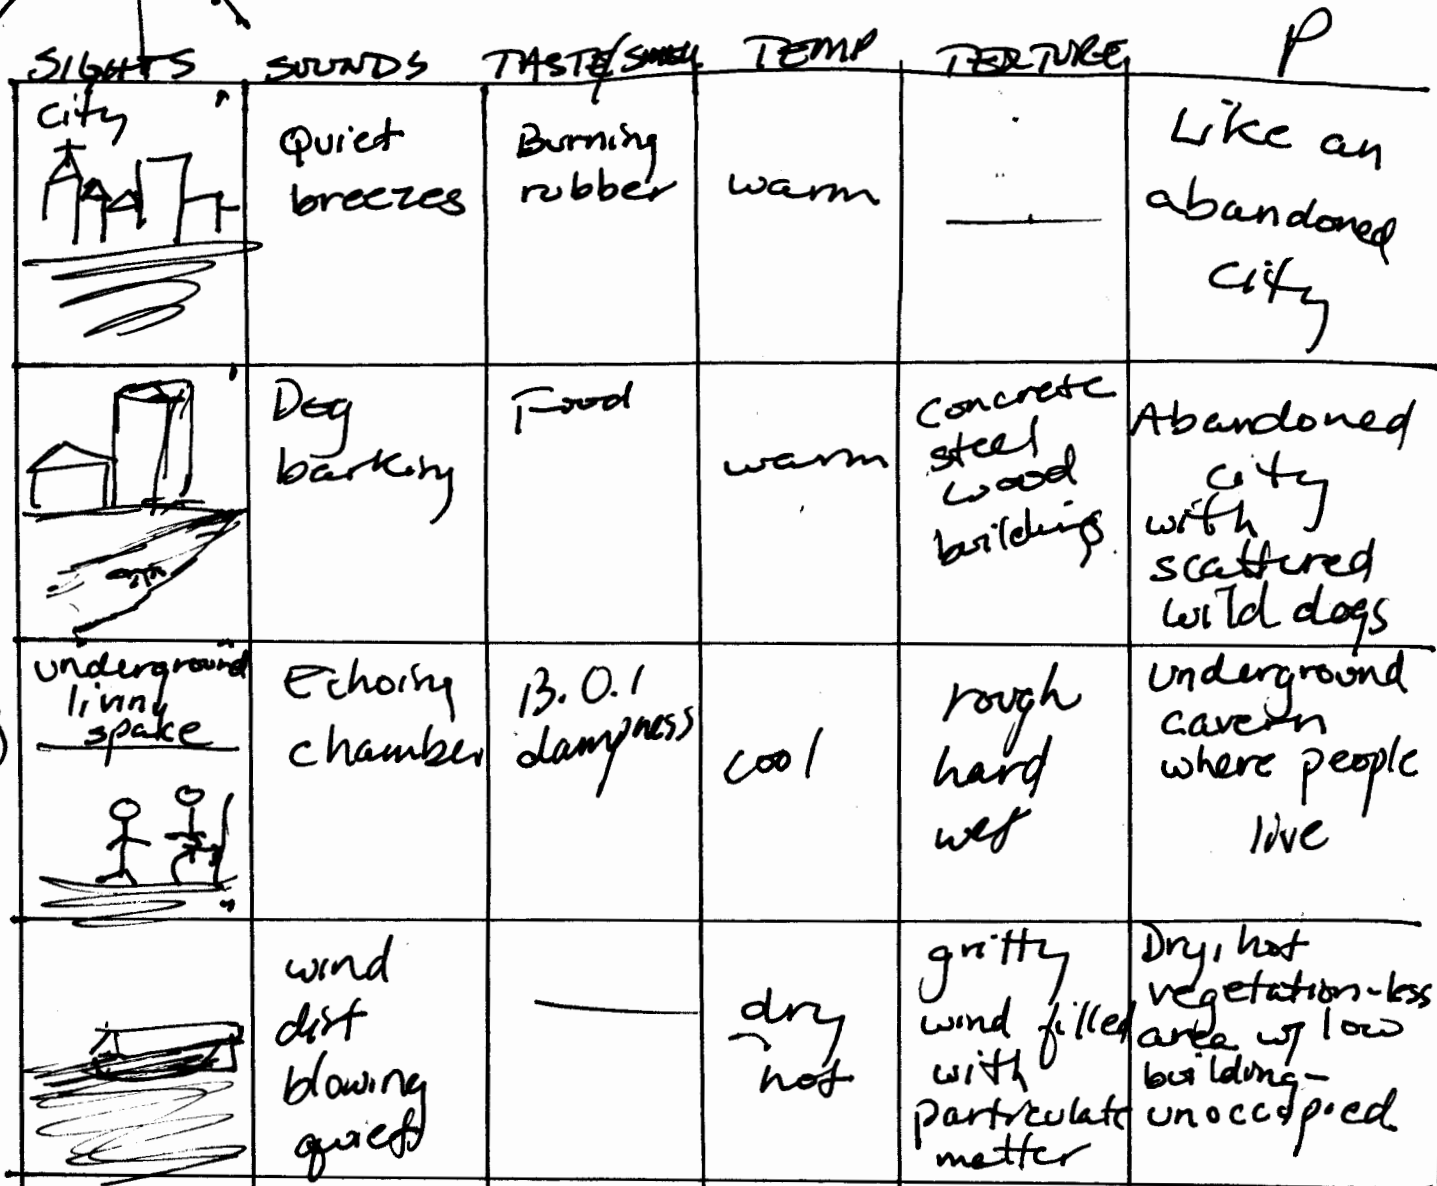 SIGHTS SOUNDS TASTE/SMELL TEMP TEXTURE P
city
Quiet
breezes
Burning
rubber
warm
Like an
abandoned
city
Dog
barking
Food
warm
concrete
steel
wood
buildings
Abandoned
city
with
scattered
wild dogs
underground
living
space
Echoing
chamber
B.O.
dampness
cool
rough
hard
wet
underground
cavern
where people
live
wind
dirt
blowing
quiet
dry
hot
gritty
wind filled
with
particulate
matter
Dry, hot
vegetation-less
area w/ low
building-
unoccupied